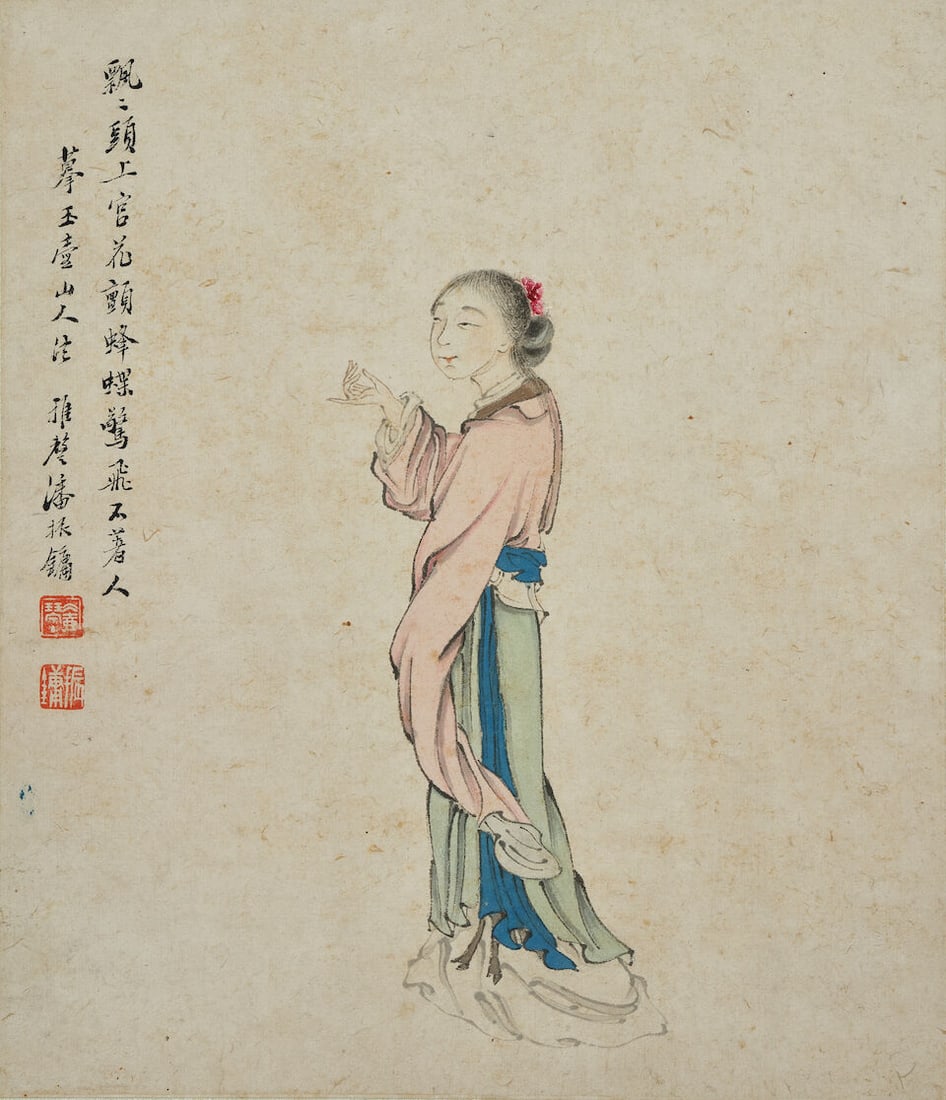 飄〻頭上官花顫蜂蝶驚飛不著人
摹玉壺山人法 雅聲潘振鏞